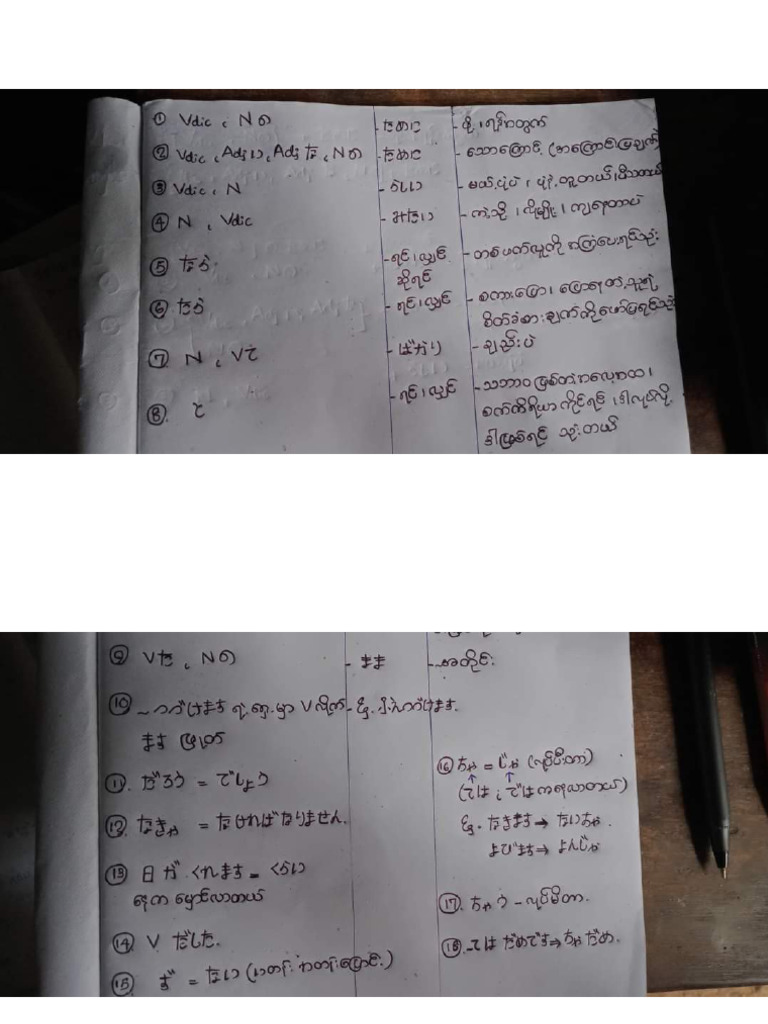 ① Vdic、Nの - ために - ဖို့၊ ရန်အတွက်
② Vdic、Adjい、Adjな、Nの - ために - သောကြောင့် (အကြောင်းပြချက်)
③ Vdic、N - らしい - မယ့်ပုံပဲ၊ ပုံရ၊ တူတယ်၊
④ N、Vdic - みたい - ကဲ့သို့၊ လိုမျိုး၊
⑤ なら - ရင်၊ လျှင် - တစ်ဖက်လူကို အကြံပေးရင်သုံး
ဆိုရင်
⑥ たら - ရင်၊ လျှင် - စကားပြော၊ ပြောရတဲ့သူရဲ့
စိတ်ခံစားချက်ကိုဖော်ပြရင်သုံး
⑦ N、Vて - ばかり - ချည်းပဲ
⑧. と - ရင်၊ လျှင် - သဘာဝဖြစ်တဲ့အလေ့အထ၊
စက်ကိရိယာကိုင်ရင်၊ ဒါလုပ်လို့
ဒါဖြစ်ရင် သုံးတယ်
⑨ Vた、Nの - まま - ~အတိုင်း
⑩ ~つづけます ရဲ့ရှေ့မှာ Vလိုက်
ます ဖြုတ်
⑪. だろう = でしょう
⑫. なきゃ = なければなりません.
⑬ 日が くれます = くらい
နေက မှောင်လာတယ်
⑭ V だした.
⑮ ず = ない
⑯ ちゃ = じゃ (လုပ်ပြီးတာ)
(ては、ではကရလာတယ်)
ဥ. なきます → ないちゃ.
よびます → よんじゃ
⑰. ちゃう - လုပ်မိတာ.
⑱. ~てはだめです ⇒ ちゃだめ.